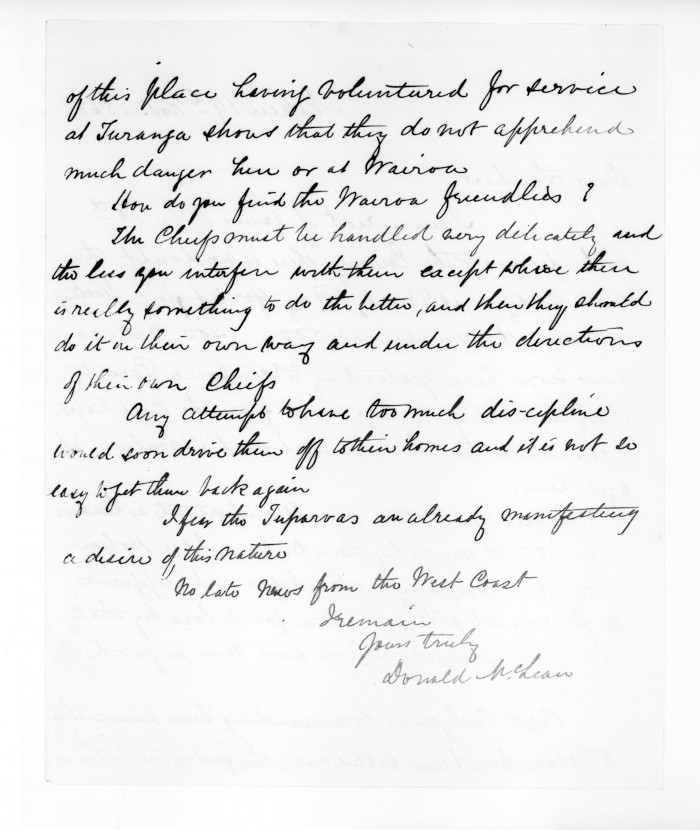 of this place having voluntured for service
at Turanga shows that they do not apprehend
much danger here or at Wairoa
How do you find the Wairoa friendlies ?
The Chiefs must be handled very delicately and
the less you interfere with them except where there
is really something to do the better, and then they should
do it in their own way and under the directions
of their own Chiefs
Any attempt to have too much dis-cipline
would soon drive them off to their homes and it is not so
easy to get them back again
I fear the are already manifesting
a desire of this nature
No late News from the West Coast
I remain
Yours truly
Donald McLean